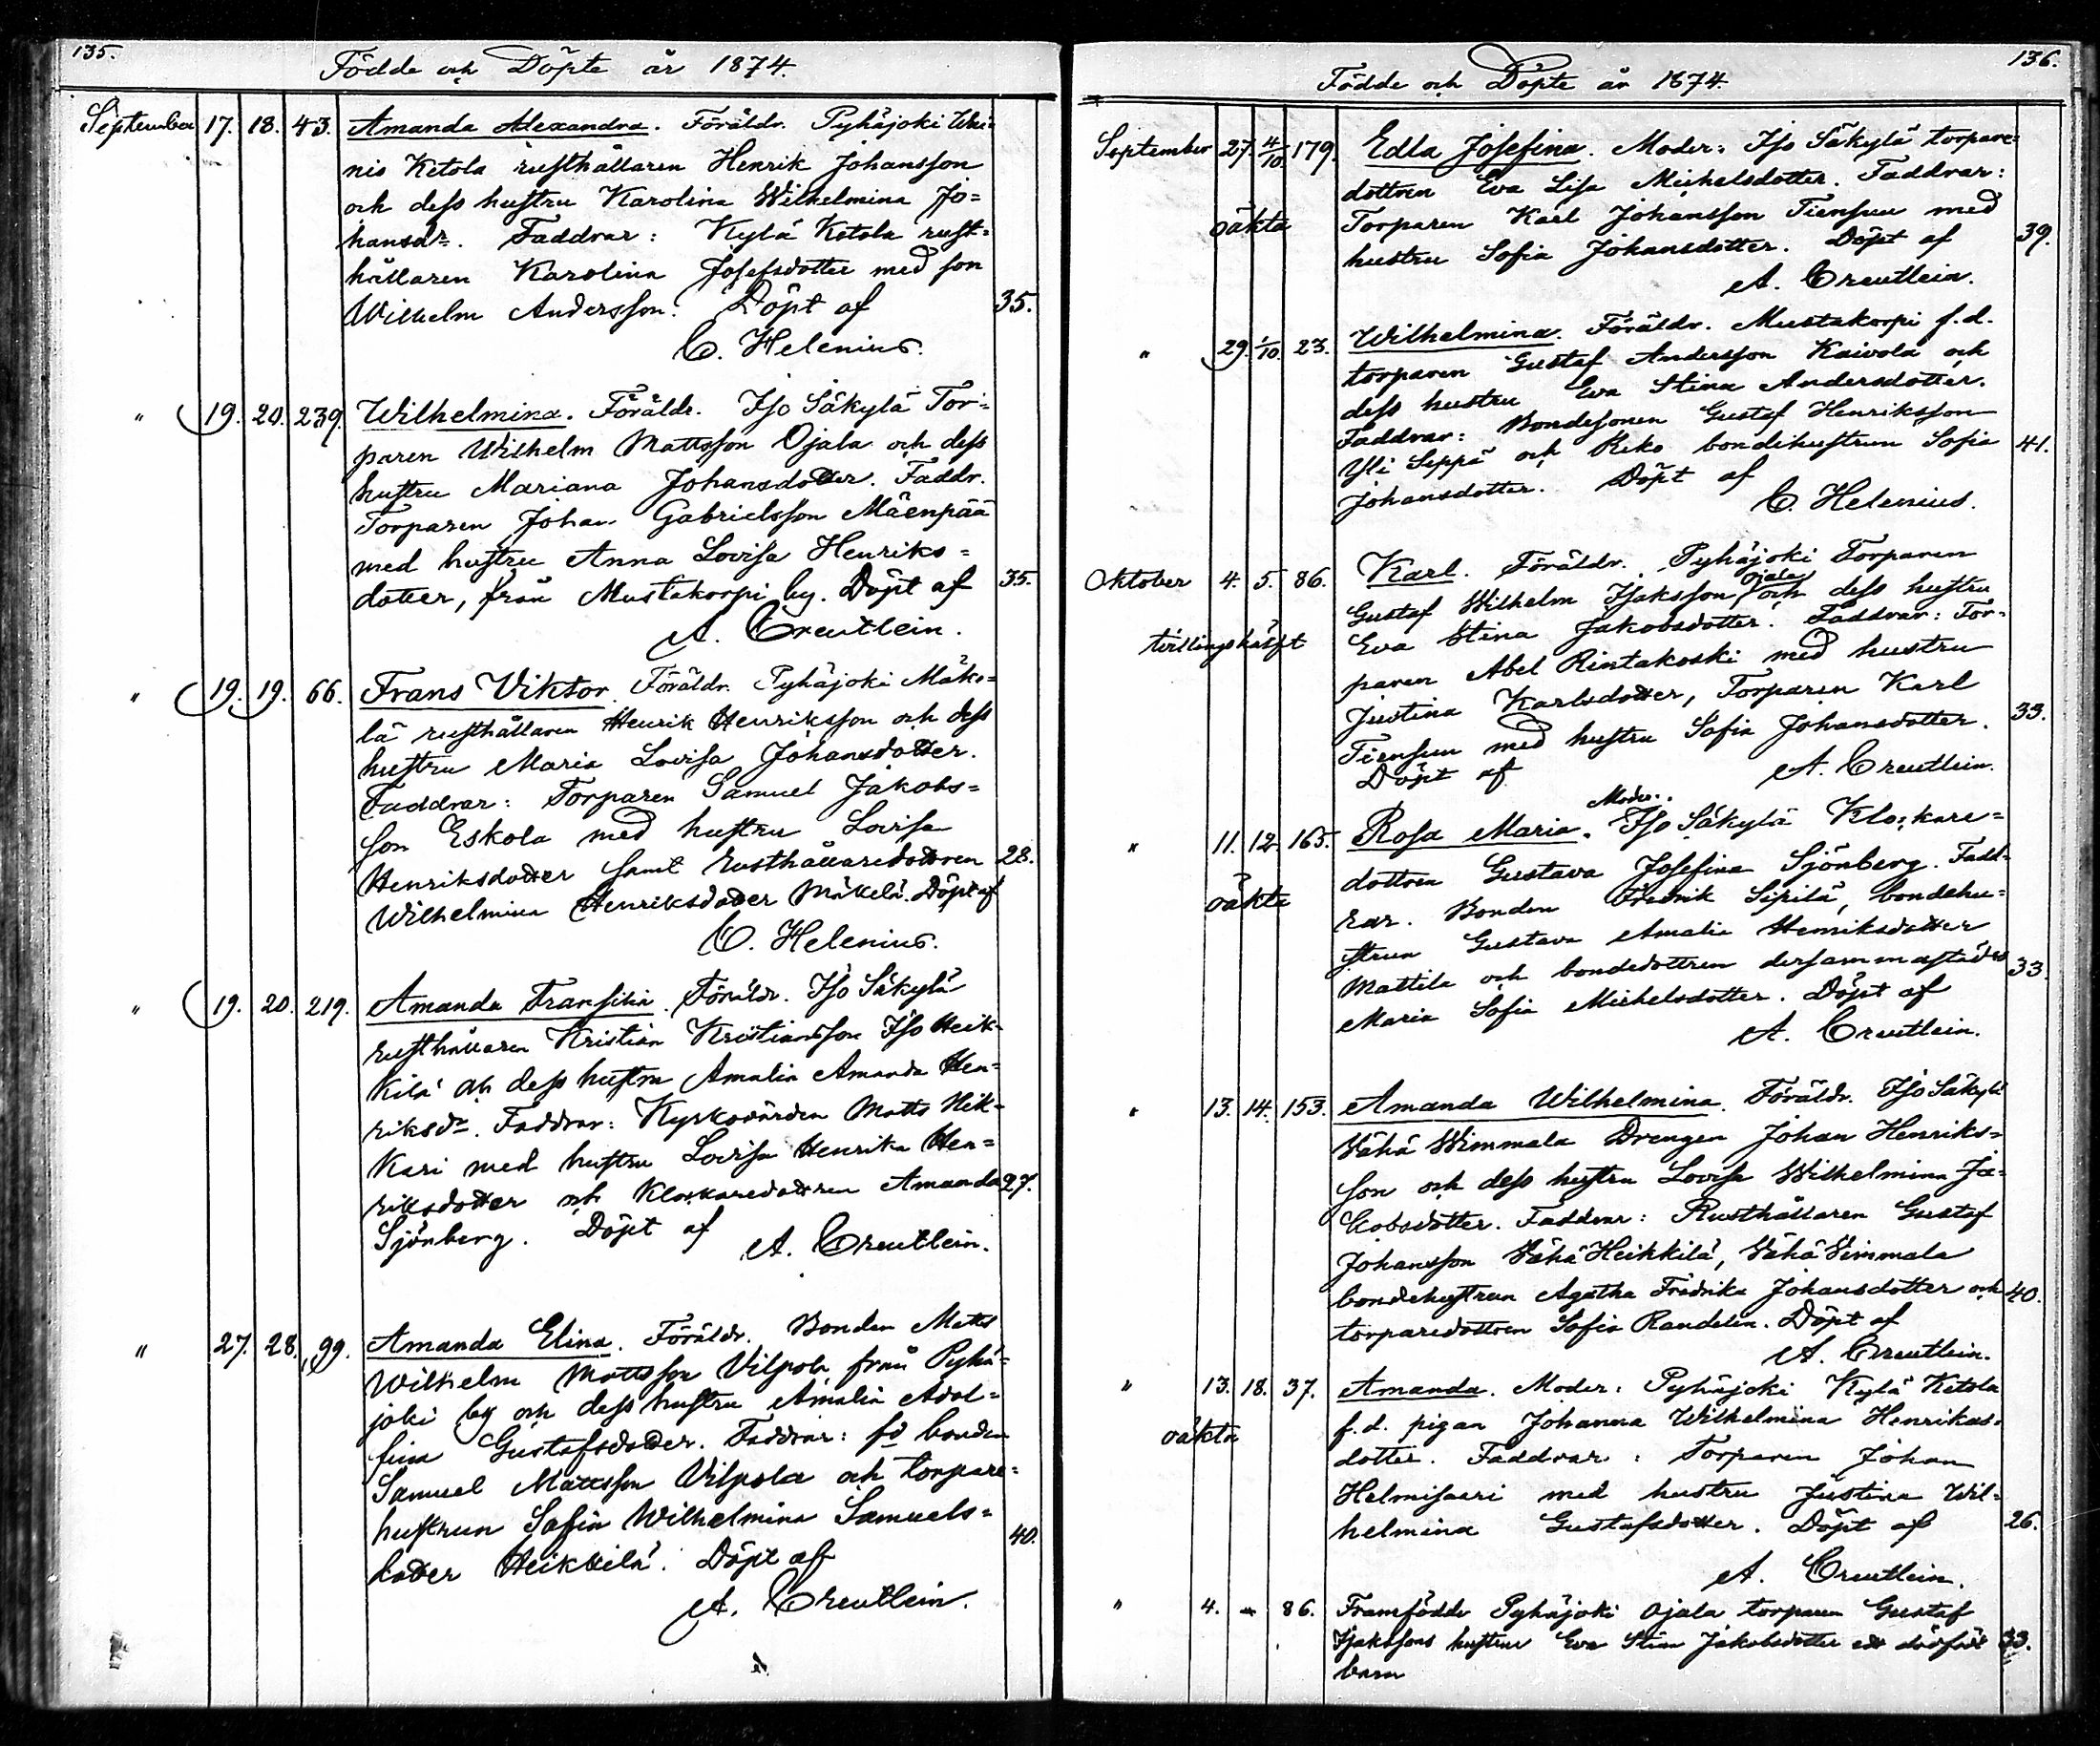 135.
Födde och Döpte år 1874.
September 17. 18. 43. Amanda Alexandra. Föräldr. Pyhäjoki Wai=
nio Ketola rusthållaren Henrik Johansson
och dess hustru Karolina Wilhelmina Jo=
hansdr. Faddrar: Kylä Ketola rust=
hållaren Karolina Josefsdotter med son
Wilhelm Andersson. Döpt af 35.
C. Helenius.
" 19. 20. 239. Wilhelmina. Föräldr. Iso Säkylä Tor=
paren Wilhelm Mattsson Ojala och dess
hustru Mariana Johansdotter. Faddr.
Torparen Johan Gabrielsson Mäenpää
med hustru Anna Lovisa Henriks=
dotter, från Mustakorpi by. Döpt af 35.
A. Creutlein.
" 19. 19. 66. Frans Viktor. Föräldr. Pyhäjoki Mäke=
lä rusthållaren Henrik Henriksson och dess
hustru Maria Lovisa Johansdotter.
Faddrar: Torparen Samuel Jakobs=
son Eskola med hustru Lovisa
Henriksdotter samt rusthållaredottren 28.
Wilhelmina Henriksdotter Mäkelä. Döpt af
C. Helenius.
" 19. 20. 219. Amanda Fransiska. Föräldr. Iso Säkylä
rusthållaren Kristian Kristiansson Iso Heik=
kilä och dess hustru Amalia Amanda Hen=
riksdr. Faddrar: Kyrkovärden Matts Hik=
kari med hustru Lovisa Henrika Hen=
riksdotter och Klockaredottren Amanda 27.
Sjönberg. Döpt af
A. Creutlein.
" 27. 28. 99. Amanda Elina. Föräldr. Bonden Matts
Wilhelm Mattsson Vilpola från Pyhä=
joki by och dess hustru Amalia Adol=
fina Gustafsdotter. Faddrar: fd bonden
Samuel Mattsson Vilpola och torpare=
hustrun Sofia Wilhelmina Samuels=
dotter Heikkilä. Döpt af 40.
A. Creutlein.
136.
Födde och Döpte år 1874.
September 27. 4/10. 179. Edla Josefina. Moder: Iso Säkylä torpare=
dottren Eva Lisa Michelsdotter. Faddrar:
oäkta Torparen Karl Johansson Tiensuu med 39.
hustru Sofia Johansdotter. Döpt af
A. Creutlein.
" 29. 1/10. 23. Wilhelmina. Föräldr. Mustakorpi f.d.
torparen Gustaf Andersson Kaivola och
dess hustru Eva Stina Andersdotter.
Faddrar: Bondesonen Gustaf Henriksson
Yli Seppä och Reko bondehustrun Sofia 41.
Johansdotter. Döpt af
C. Helenius.
Oktober 4. 5. 86. Karl. Föräldr. Pyhäjoki Torparen
Gustaf Wilhelm Isaksson Ojala och dess hustru
tvillingshälft Eva Stina Jakobsdotter. Faddrar: Tor=
paren Abel Rintakoski med hustru
Justina Karlsdotter, Torparen Karl
Tiensuu med hustru Sofia Johansdotter. 33.
Döpt af A. Creutlein.
" 11. 12. 165. Rosa Maria. Moder: Iso Säkylä Klockare=
dottren Gustava Josefina Sjönberg. Fadd=
oäkta rar. Bonden Fredrik Sipilä, bondehu=
strun Gustava Amalia Henriksdotter
Mattila och bondedottren dersammastädes 33.
Maria Sofia Michelsdotter. Döpt af
A. Creutlein.
" 13. 14. 153. Amanda Wilhelmina. Föräldr. Iso Säkylä
Vähä Wimmala Drengen Johan Henriks=
son och dess hustru Lovisa Wilhelmina Ja=
kobsdotter. Faddrar: Rusthållaren Gustaf
Johansson Vähä Heikkilä, Vähä Vimmala
bondehustrun Agatha Fredrika Johansdotter och 40.
torparedottren Sofia Randelin. Döpt af
A. Creutlein.
" 13. 18. 37. Amanda. Moder: Pyhäjoki Kylä Ketola
oäkta f.d. pigan Johanna Wilhelmina Henriks=
dotter. Faddrar: Torparen Johan
Helmisaari med hustru Justina Wil=
helmina Gustafsdotter. Döpt af 26.
A. Creutlein.
" 4. - 86. Framfödde Pyhäjoki Ojala torparen Gustaf
Isakssons hustru Eva Stina Jakobsdotter ett dödfödt 33.
barn